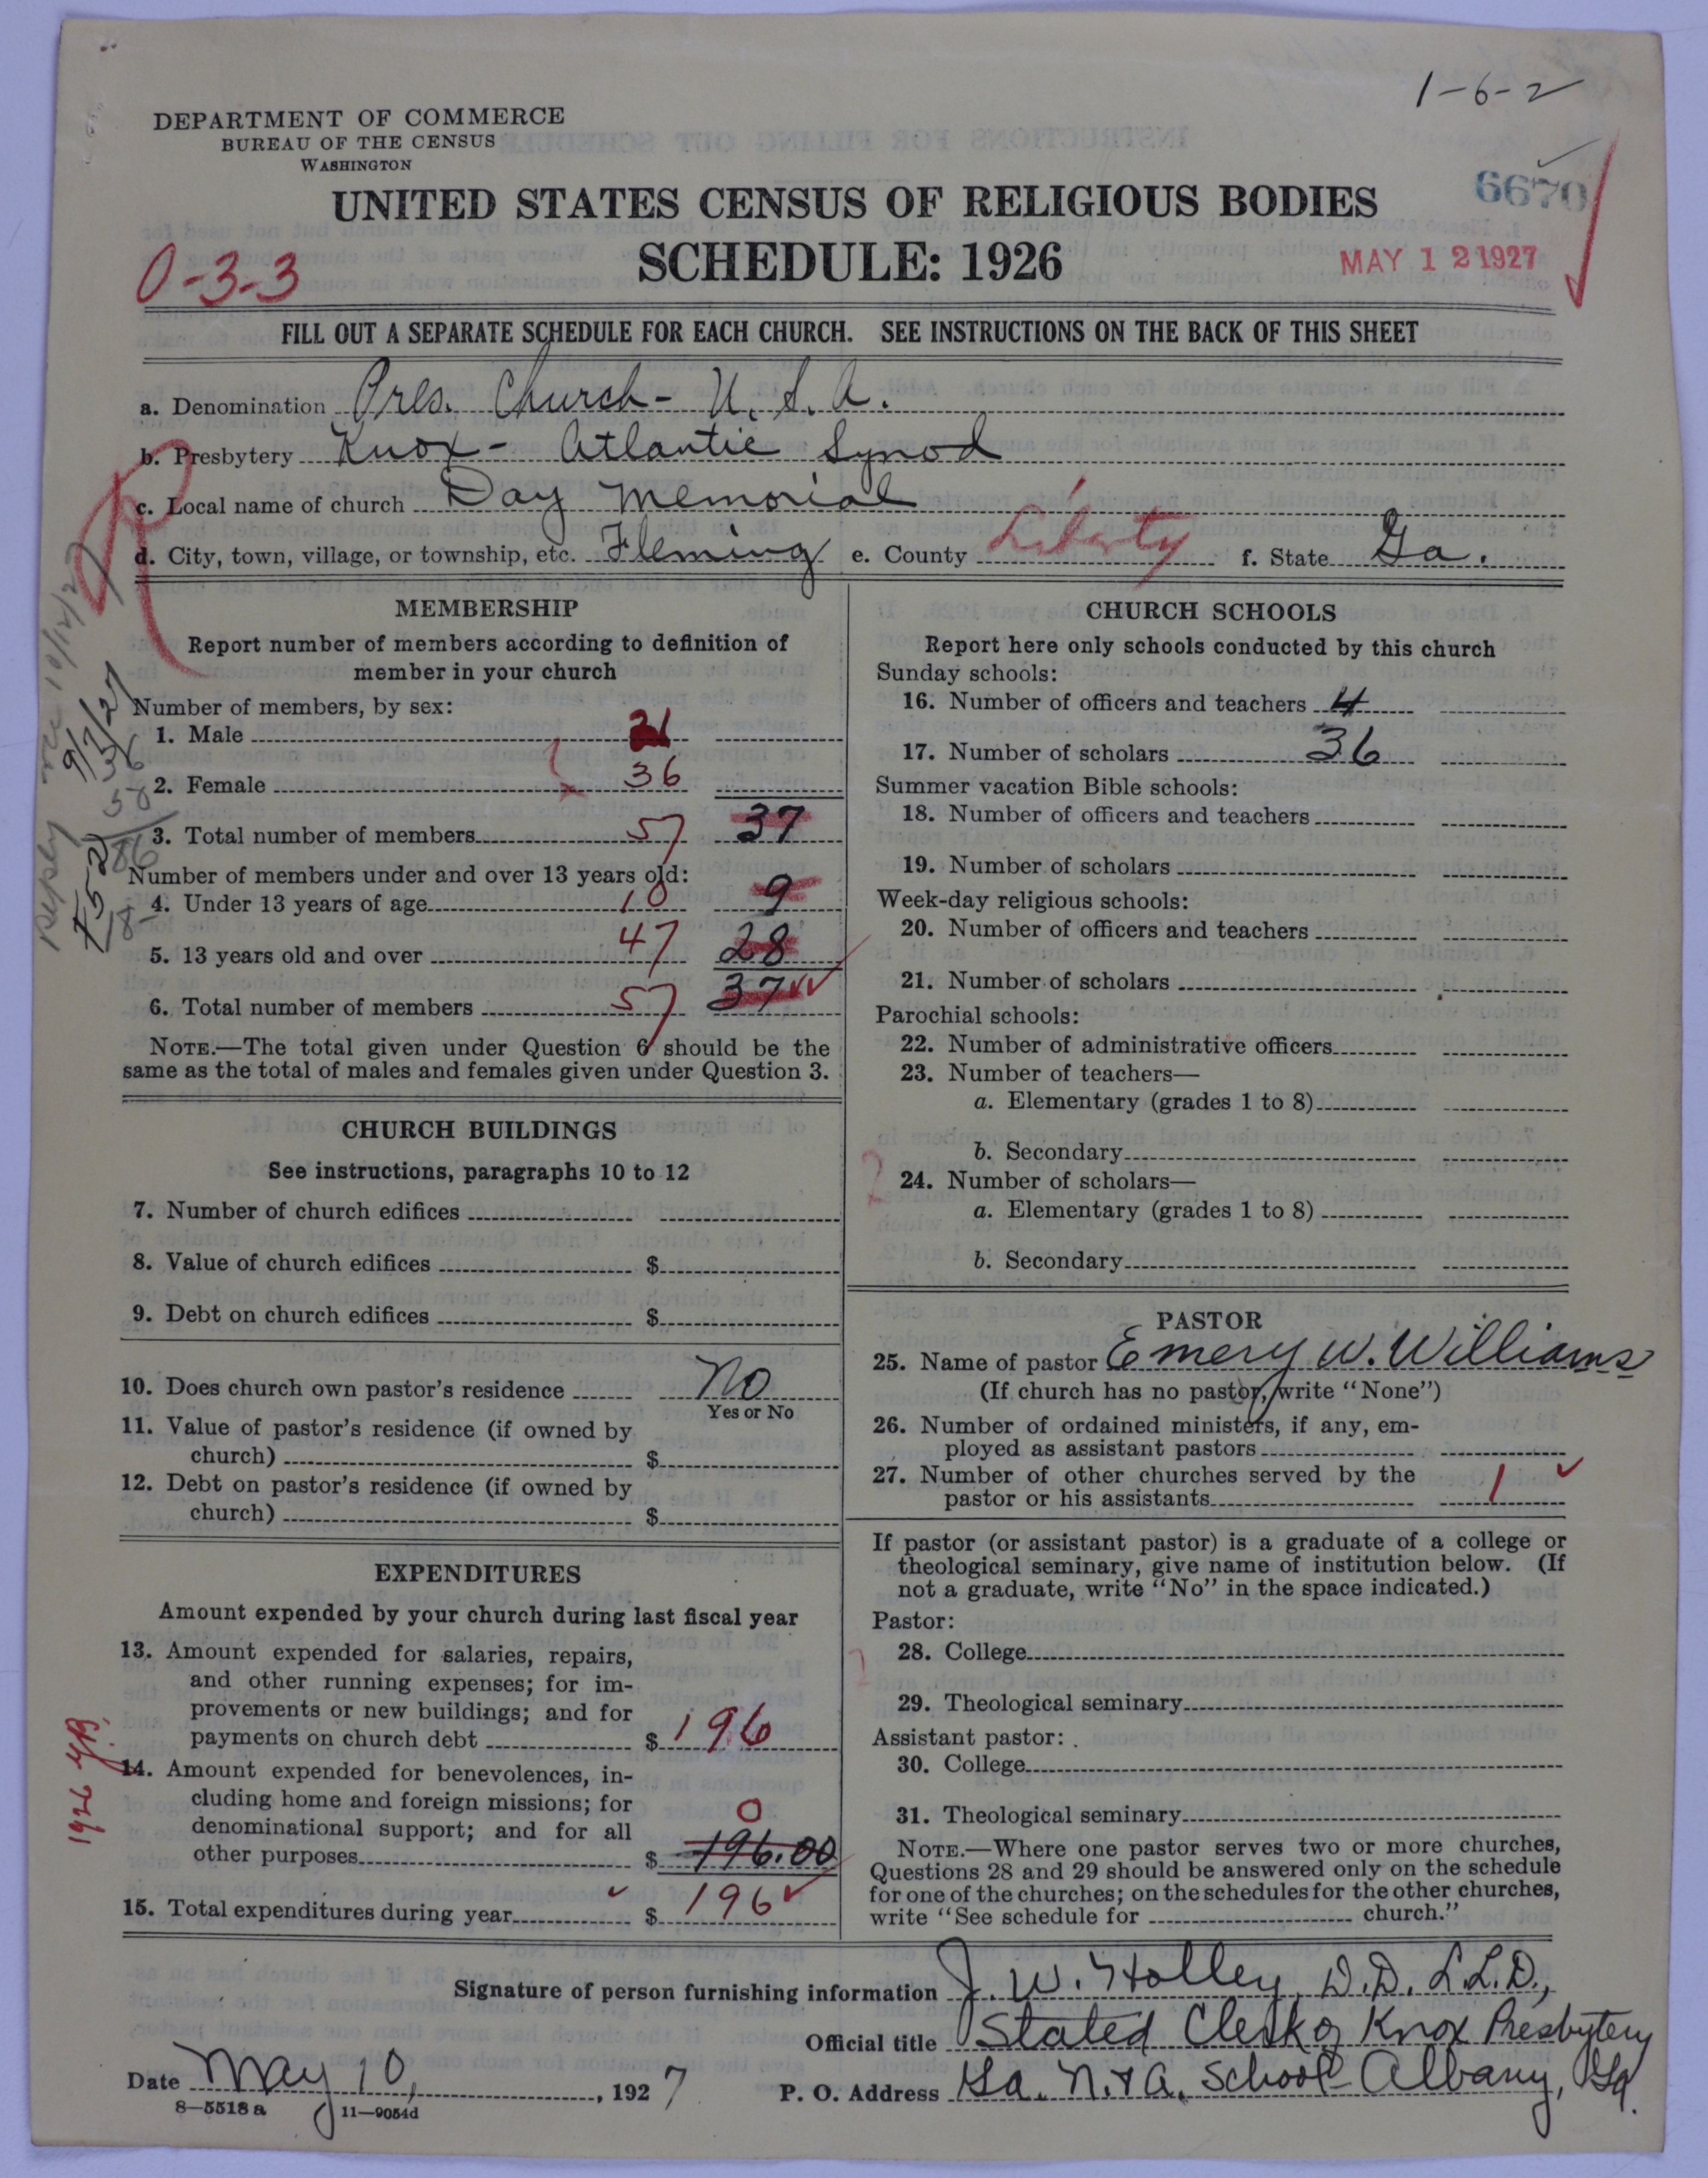 1-6-2
DEPARTMENT OF COMMERCE
BUREAU OF THE CENSUS
WASHINGTON
UNITED STATES CENSUS OF RELIGIOUS BODIES
6670
SCHEDULE: 1926
MAY 12 1927
0-3-3
FILL OUT A SEPARATE SCHEDULE FOR EACH CHURCH. SEE INSTRUCTIONS ON THE BACK OF THIS SHEET
a. Denomination Pres. Church - U. S. A.
b. Presbytery Knox - Atlantic Synod
c. Local name of church Day Memorial
d. City, town, village, or township, etc. Fleming e. County Liberty f. State Ga.
MEMBERSHIP
Report number of members according to definition of
member in your church
Number of members, by sex:
1. Male 21
2. Female 36
3. Total number of members 57 37
Number of members under and over 13 years old:
4. Under 13 years of age 10 9
5. 13 years old and over 47 28
6. Total number of members 57 37
NOTE.—The total given under Question 6 should be the
same as the total of males and females given under Question 3.
CHURCH BUILDINGS
See instructions, paragraphs 10 to 12
7. Number of church edifices
8. Value of church edifices $
9. Debt on church edifices $
10. Does church own pastor's residence No
Yes or No
11. Value of pastor's residence (if owned by
church) $
12. Debt on pastor's residence (if owned by
church) $
EXPENDITURES
Amount expended by your church during last fiscal year
13. Amount expended for salaries, repairs,
and other running expenses; for im-
provements or new buildings; and for
payments on church debt $ 196
14. Amount expended for benevolences, in-
cluding home and foreign missions; for
denominational support; and for all 0
other purposes $ 196.00
15. Total expenditures during year $ 196
Reply rec 10/12/27
9/7/27
1926 YB.
CHURCH SCHOOLS
Report here only schools conducted by this church
Sunday schools:
16. Number of officers and teachers 4
17. Number of scholars 36
Summer vacation Bible schools:
18. Number of officers and teachers
19. Number of scholars
Week-day religious schools:
20. Number of officers and teachers
21. Number of scholars
Parochial schools:
22. Number of administrative officers
23. Number of teachers—
a. Elementary (grades 1 to 8)
b. Secondary
24. Number of scholars—
a. Elementary (grades 1 to 8)
b. Secondary
PASTOR
25. Name of pastor Emery W. Williams
(If church has no pastor, write "None")
26. Number of ordained ministers, if any, em-
ployed as assistant pastors
27. Number of other churches served by the
pastor or his assistants 1
If pastor (or assistant pastor) is a graduate of a college or
theological seminary, give name of institution below. (If
not a graduate, write "No" in the space indicated.)
Pastor:
28. College
29. Theological seminary
Assistant pastor:
30. College
31. Theological seminary
NOTE.—Where one pastor serves two or more churches,
Questions 28 and 29 should be answered only on the schedule
for one of the churches; on the schedules for the other churches,
write "See schedule for church."
Signature of person furnishing information J. W. Holley, D.D. L.L.D.,
Official title Stated Clerk of Knox Presbytery
Date May 10, 1927 P. O. Address Ga. N. & A. School Albany, Ga.
8—5518 a 11—9054d